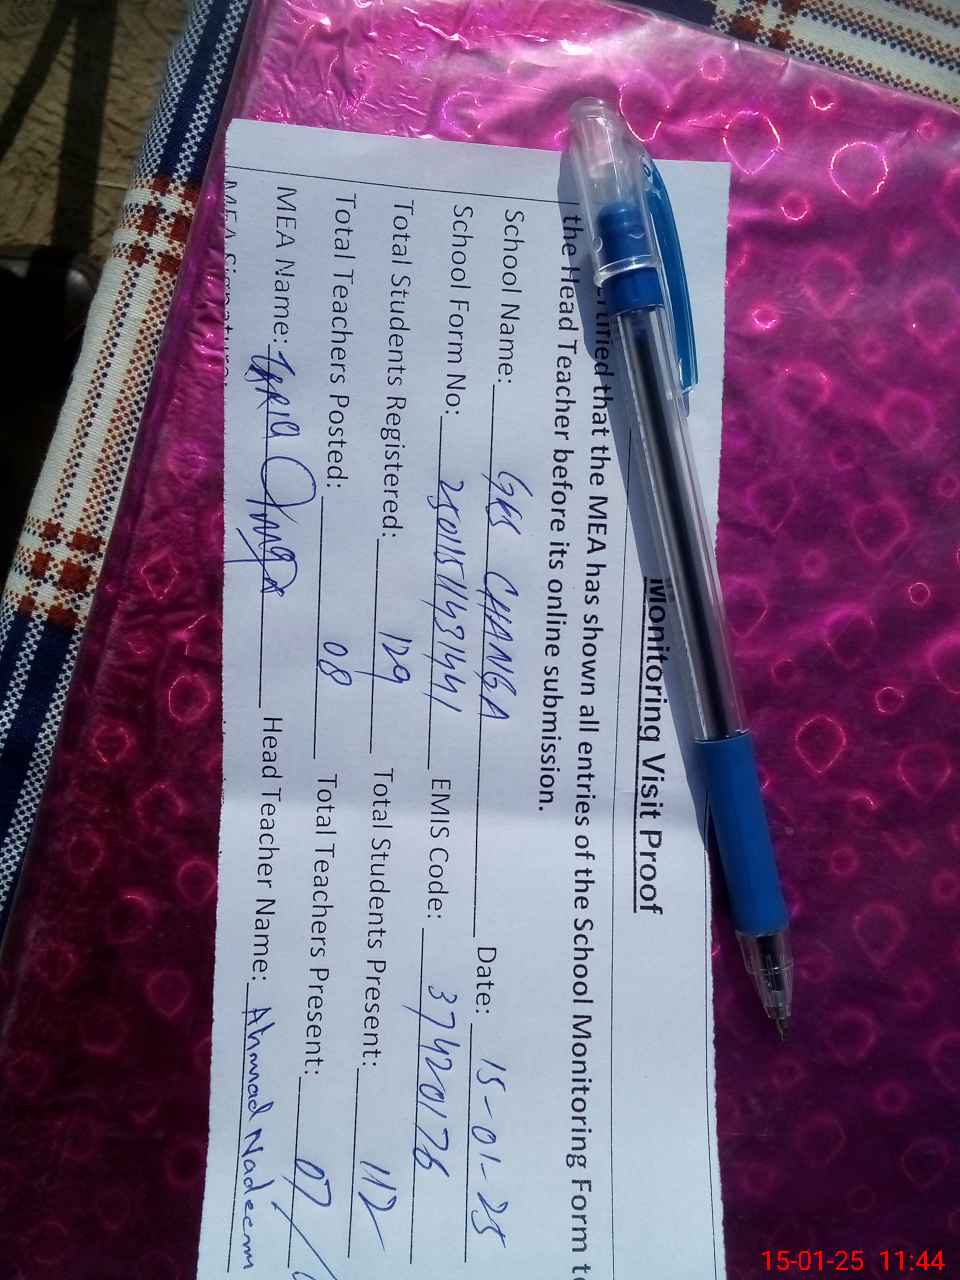 Monitoring Visit Proof
rtified that the MEA has shown all entries of the School Monitoring Form to
the Head Teacher before its online submission.
School Name: GES CHANGA Date: 15-01-25
School Form No: 25011511431441 EMIS Code: 37420176
Total Students Registered: 129 Total Students Present: 112
Total Teachers Posted: 08 Total Teachers Present: 07
MEA Name: Head Teacher Name: Ahmad Nadeem
MEA Signature:
15-01-25 11:44